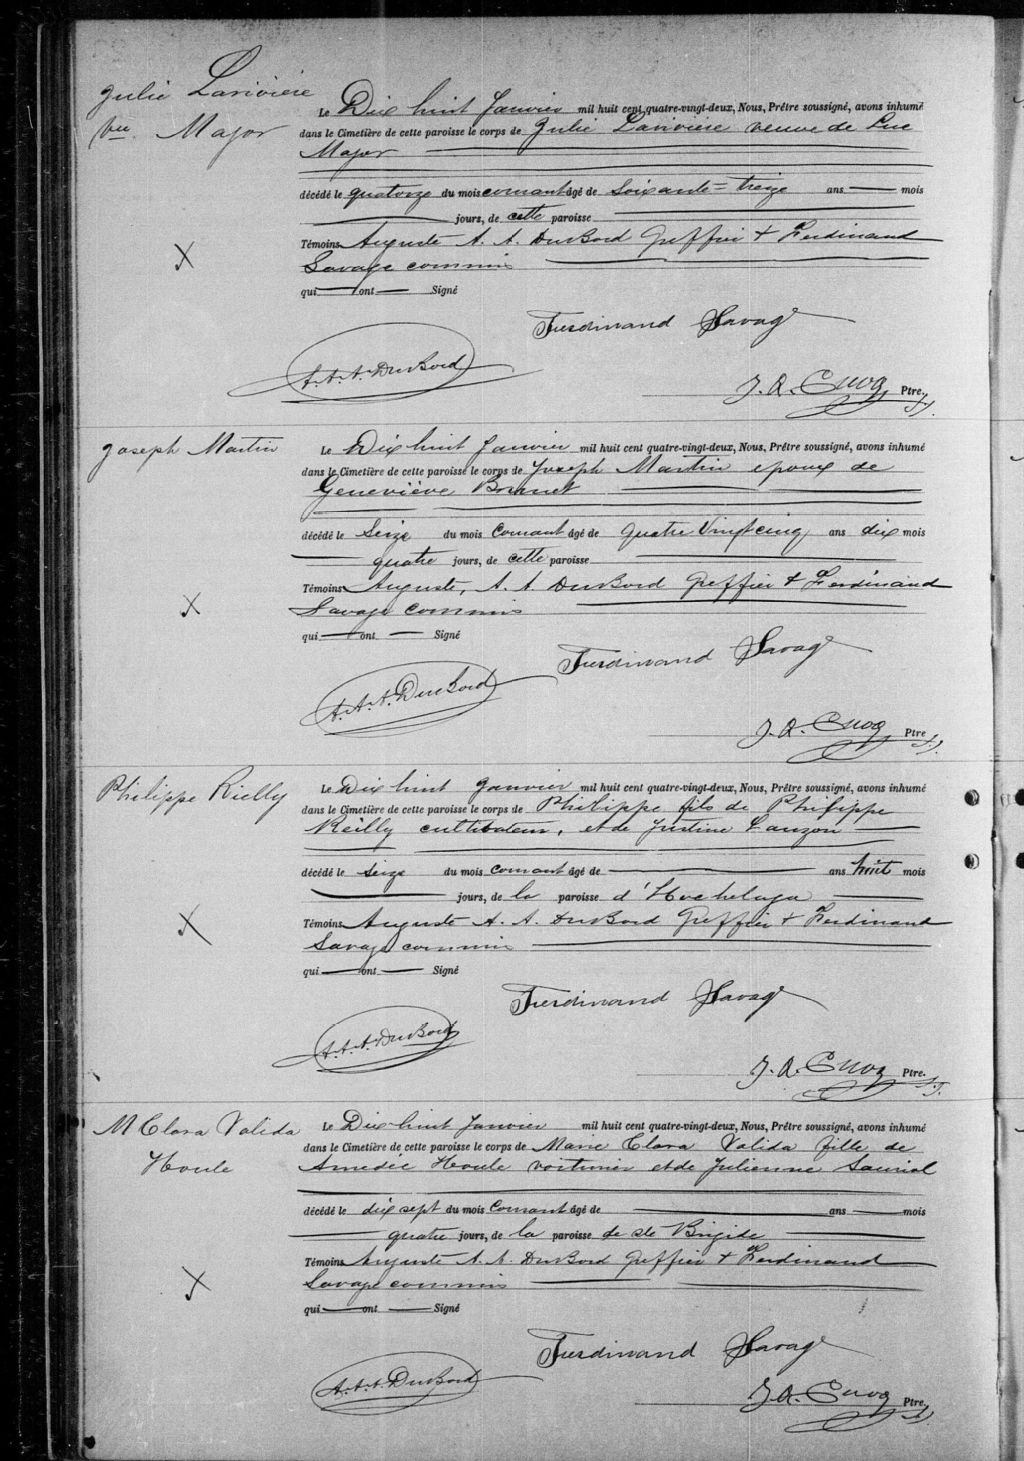 Julie Larivière
vve Major
Le Dix huit Janvier mil huit cent quatre-vingt-deux, Nous, Prêtre soussigné, avons inhumé
dans le Cimetière de cette paroisse le corps de Julie Larivière veuve de Luc
Major
décédé le quatorze du mois courant âgé de Soixante=treize ans mois
jours, de cette paroisse
Témoins Auguste A. A. DuBord Greffier + Ferdinand
Savage commis
qui ont Signé
Ferdinand Savage
A. A. A. DuBord
J. A. Cuoq Ptre.
Joseph Martin
Le Dix huit Janvier mil huit cent quatre-vingt-deux, Nous, Prêtre soussigné, avons inhumé
dans le Cimetière de cette paroisse le corps de Joseph Martin epoux de
Geneviève Brunet
décédé le Seize du mois Courant âgé de Quatre Vingt cinq ans dix mois
quatre jours, de cette paroisse
Témoins Auguste, A. A. DuBord Greffier + Ferdinand
Savage Commis
qui ont Signé
Ferdinand Savage
A. A. A. DuBord
J. A. Cuoq Ptre
Philippe Rielly
Le Dix huit Janvier mil huit cent quatre-vingt-deux, Nous, Prêtre soussigné, avons inhumé
dans le Cimetière de cette paroisse le corps de Philippe fils de Philippe
Reilly cultivateur, et de Justine Lauzon
décédé le seize du mois courant âgé de ans huit mois
jours, de la paroisse d'Hochelaga
Témoins Auguste A. A. DuBord Greffier + Ferdinand
Savage commis
qui ont Signé
Ferdinand Savage
A. A. A. DuBord
J. A. Cuoq Ptre.
M Clara Valida
Houle
Le Dix huit Janvier mil huit cent quatre-vingt-deux, Nous, Prêtre soussigné, avons inhumé
dans le Cimetière de cette paroisse le corps de Marie Clara Valida fille de
Amedée Houle voiturier et de Julienne Sauriol
décédé le dix sept du mois Courant âgé de ans mois
quatre jours, de la paroisse de ste Brigide
Témoins Auguste A. A. DuBord Greffier + Ferdinand
Savage commis
qui ont Signé
Ferdinand Savage
A. A. A. DuBord
J. A. Cuoq Ptre.